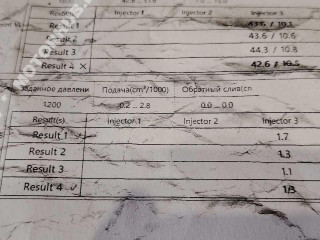 Result(s) Injector 1 Injector 2 Injector 3
Result 1
Result 2 43.6 / 10.6
Result 3 44.3 / 10.8
Result 4 × 42.6 / 10.5
Заданное давлени Подача(cm³/1000) Обратный слив(cm
1200 0.2 ... 2.8 0.0 ... 0.0
Result(s) Injector 1 Injector 2 Injector 3
Result 1 1.7
Result 2 1.3
Result 3 1.1
Result 4 ✓ 1.3